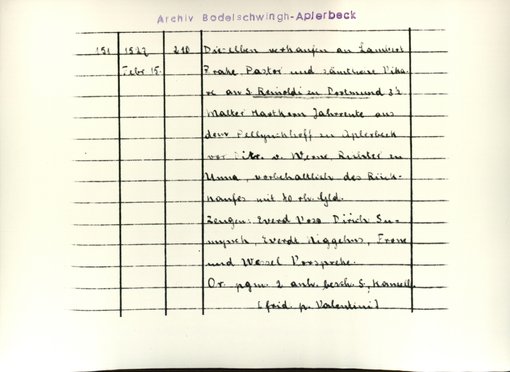 Archiv Bodelschwingh-Aplerbeck
151 1527 210 Dieselben verkaufen an Lambert
Febr 15. Frake, Pastor und sämtliche Vika-
re an S. Reinoldi zu Dortmund 3½
Malter Hartkorn Jahrrente aus
dem hoff in Aplerbeck
vor v. Werne, Richter in
Unna, vorbehaltlich des Rück-
kaufes mit 80 rh. Gld.
Zeugen: Everd Voss, Dirich
Everdt Niggehus,
und Wessel Vorspreke.
Or. pgm. 2 anh. besch. S,
(frid. p. Valentini)